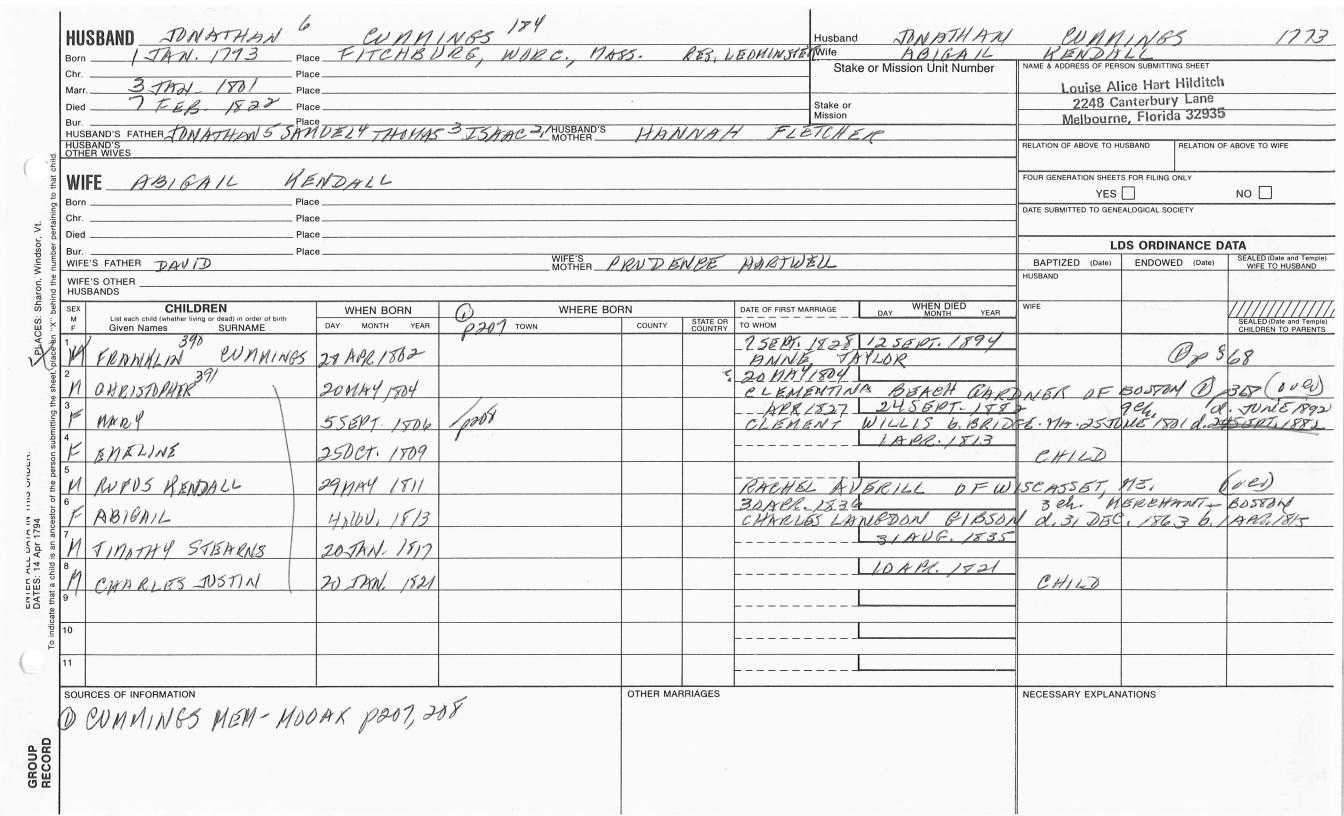 HUSBAND JONATHAN 6 CUMMINGS 184
Born 1 JAN. 1773 Place FITCHBURG, WORC., MASS. RES. LEOMINSTER
Chr. Place
Marr. 3 JAN. 1801 Place
Died 7 FEB. 1822 Place
Bur. Place
HUSBAND'S FATHER JONATHAN 5 SAMUEL 4 THOMAS 3 ISAAC 2,1 HUSBAND'S MOTHER HANNAH FLETCHER
HUSBAND'S OTHER WIVES
Husband JONATHAN CUMMINGS 1773
Wife ABIGAIL KENDALL
Stake or Mission Unit Number
Stake or Mission
NAME & ADDRESS OF PERSON SUBMITTING SHEET
Louise Alice Hart Hilditch
2248 Canterbury Lane
Melbourne, Florida 32935
RELATION OF ABOVE TO HUSBAND RELATION OF ABOVE TO WIFE
FOUR GENERATION SHEETS FOR FILING ONLY
YES NO
DATE SUBMITTED TO GENEALOGICAL SOCIETY
WIFE ABIGAIL KENDALL
Born Place
Chr. Place
Died Place
Bur. Place
WIFE'S FATHER DAVID WIFE'S MOTHER PRUDENCE HARTWELL
WIFE'S OTHER HUSBANDS
LDS ORDINANCE DATA
BAPTIZED (Date) ENDOWED (Date) SEALED (Date and Temple) WIFE TO HUSBAND
HUSBAND
WIFE
SEALED (Date and Temple) CHILDREN TO PARENTS
SEX M F
CHILDREN
List each child (whether living or dead) in order of birth
Given Names SURNAME
WHEN BORN
DAY MONTH YEAR
WHERE BORN
① p207 TOWN COUNTY STATE OR COUNTRY
DATE OF FIRST MARRIAGE
TO WHOM
WHEN DIED
DAY MONTH YEAR
1 M FRANKLIN 390 CUMMINGS 28 APR 1802 9 SEPT. 1828 12 SEPT. 1894
ANNE TAYLOR ① p 368
2 M CHRISTOPHER 391 20 MAY 1804 20 MAY 1804
CLEMENTINA BEACH GARDNER OF BOSTON ① p368 (over)
3 F MARY 5 SEPT. 1806 p208 APR 1827 24 SEPT. 1882 9 ch. d. JUNE 1892
CLEMENT WILLIS b. BRIDGE. MA. 25 JUNE 1801 d. 24 SEPT. 1882
4 F EMELINE 25 OCT. 1809 1 APR. 1813 CHILD
5 M RUFUS KENDALL 29 MAY 1811
RACHEL AVERILL OF WISCASSET, ME. (over)
6 F ABIGAIL 4 NOV. 1813 30 APR. 1836 3 ch. MERCHANT - BOSTON
CHARLES LANGDON GIBSON d. 31 DEC. 1863 b. 1 APR. 1815
7 M TIMOTHY STEARNS 20 JAN. 1817 31 AUG. 1835
8 M CHARLES JUSTIN 20 JAN. 1821 10 APR. 1821 CHILD
9
10
11
SOURCES OF INFORMATION
① CUMMINGS MEM- MOOAR p207, 208
OTHER MARRIAGES
NECESSARY EXPLANATIONS
PLACES: Sharon, Windsor, Vt.
ENTER ALL DATA IN THIS ORDER:
DATES: 14 Apr 1794
To indicate that a child is an ancestor of the person submitting the sheet, place an "X" behind the number pertaining to that child.
GROUP RECORD